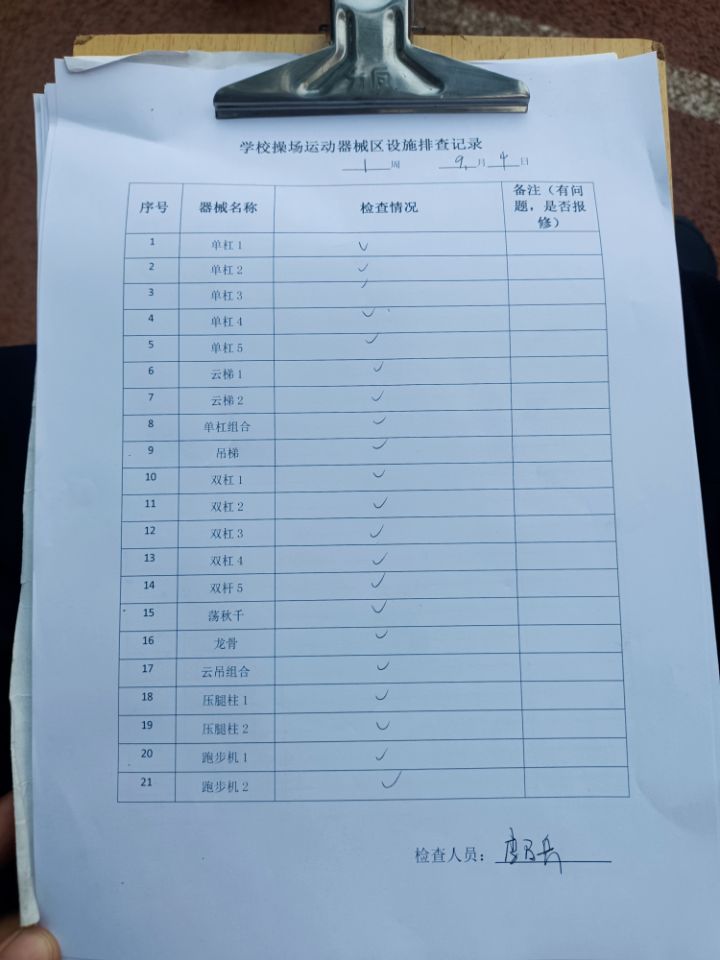 学校操场运动器械区设施排查记录
1周 9.月4日
序号 器械名称 检查情况 备注（有问题，是否报修）
1 单杠1 ✓
2 单杠2 ✓
3 单杠3 ✓
4 单杠4 ✓
5 单杠5 ✓
6 云梯1 ✓
7 云梯2 ✓
8 单杠组合 ✓
9 吊梯 ✓
10 双杠1 ✓
11 双杠2 ✓
12 双杠3 ✓
13 双杠4 ✓
14 双杆5 ✓
15 荡秋千 ✓
16 龙骨 ✓
17 云吊组合 ✓
18 压腿柱1 ✓
19 压腿柱2 ✓
20 跑步机1 ✓
21 跑步机2 ✓
检查人员：